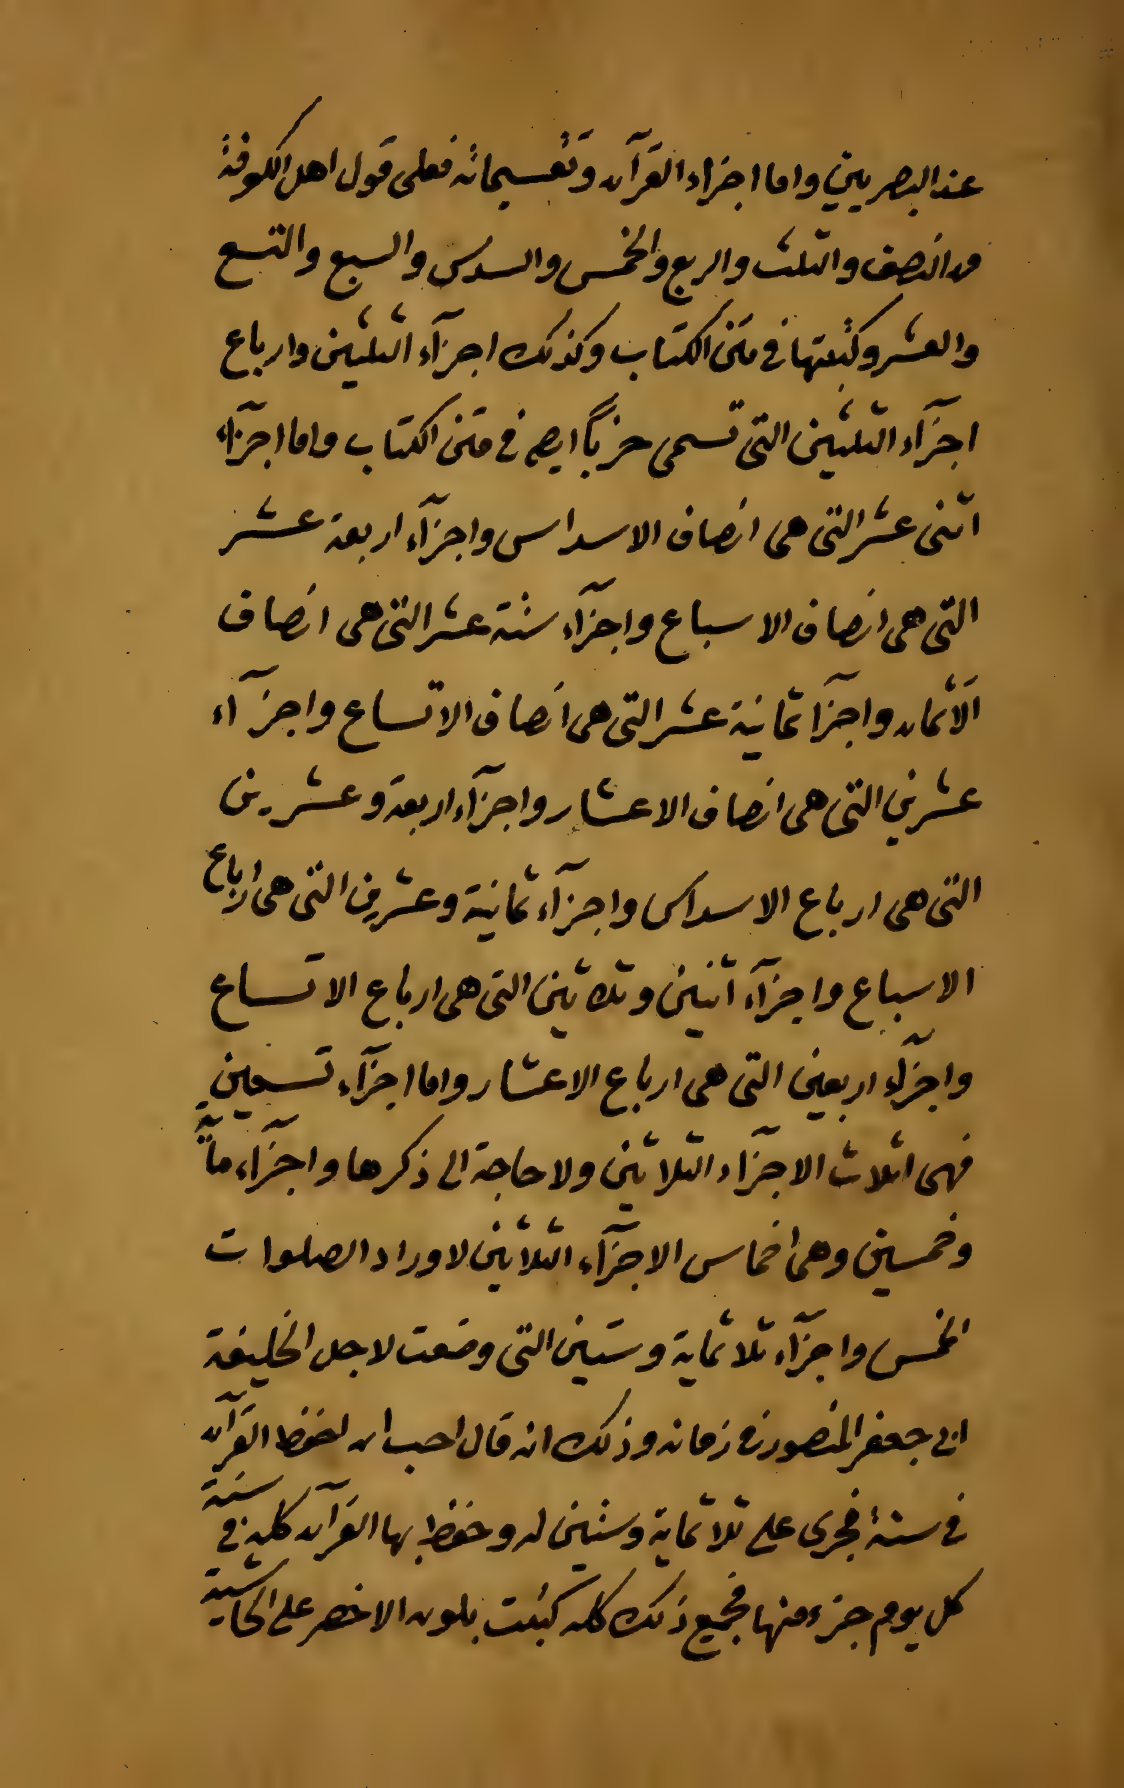 عند البصريين واما اجزاء القرآن وتقسيماته فعلى قول اهل الكوفة
من النصف والثلث والربع والخمس والسدس والسبع والتسع
والعشر وكتبتها في متن الكتاب وكذلك اجزآء الثلثين وارباع
اجزآء الثلثين التى تسمى حزباً ايضا في متن الكتاب واما اجزآء
اثنى عشر التى هى انصاف الاسداس واجزآء اربعة عشر
التى هى انصاف الاسباع واجزآء ستة عشر التى هى انصاف
الاثمان واجزآ ثمانية عشر التى هى انصاف الاتساع واجزآء
عشرين التى هى انصاف الاعشار واجزآء اربعة وعشرين
التى هى ارباع الاسداس واجزآء ثمانية وعشرين التى هى ارباع
الاسباع واجزآء اثنين وثلاثين التى هى ارباع الاتساع
واجزآء اربعين التى هى ارباع الاعشار واما اجزآء تسعين
فهى اثلاث الاجزآء الثلاثين ولا حاجة الى ذكرها واجزآء مآئة
وخمسين وهى اخماس الاجزآء الثلاثين لاوراد الصلوات
الخمس واجزآء ثلاثماية وستين التى وضعت لاجل الخليفة
ابى جعفر المنصور فى زمانه وذلك انه قال احب ان احفظ القرآن
في سنة فجرى على ثلاثماية وستين له وحفظ بها القرآن كله في سنة
كل يوم جزء منها فجميع ذلك كله كتبت بلون الاخضر على الحاشية